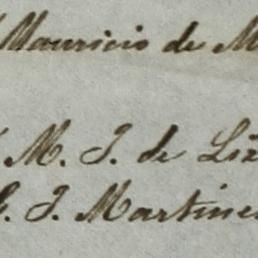 Mauricio de M
M. J. de Liz
G. J. Martine